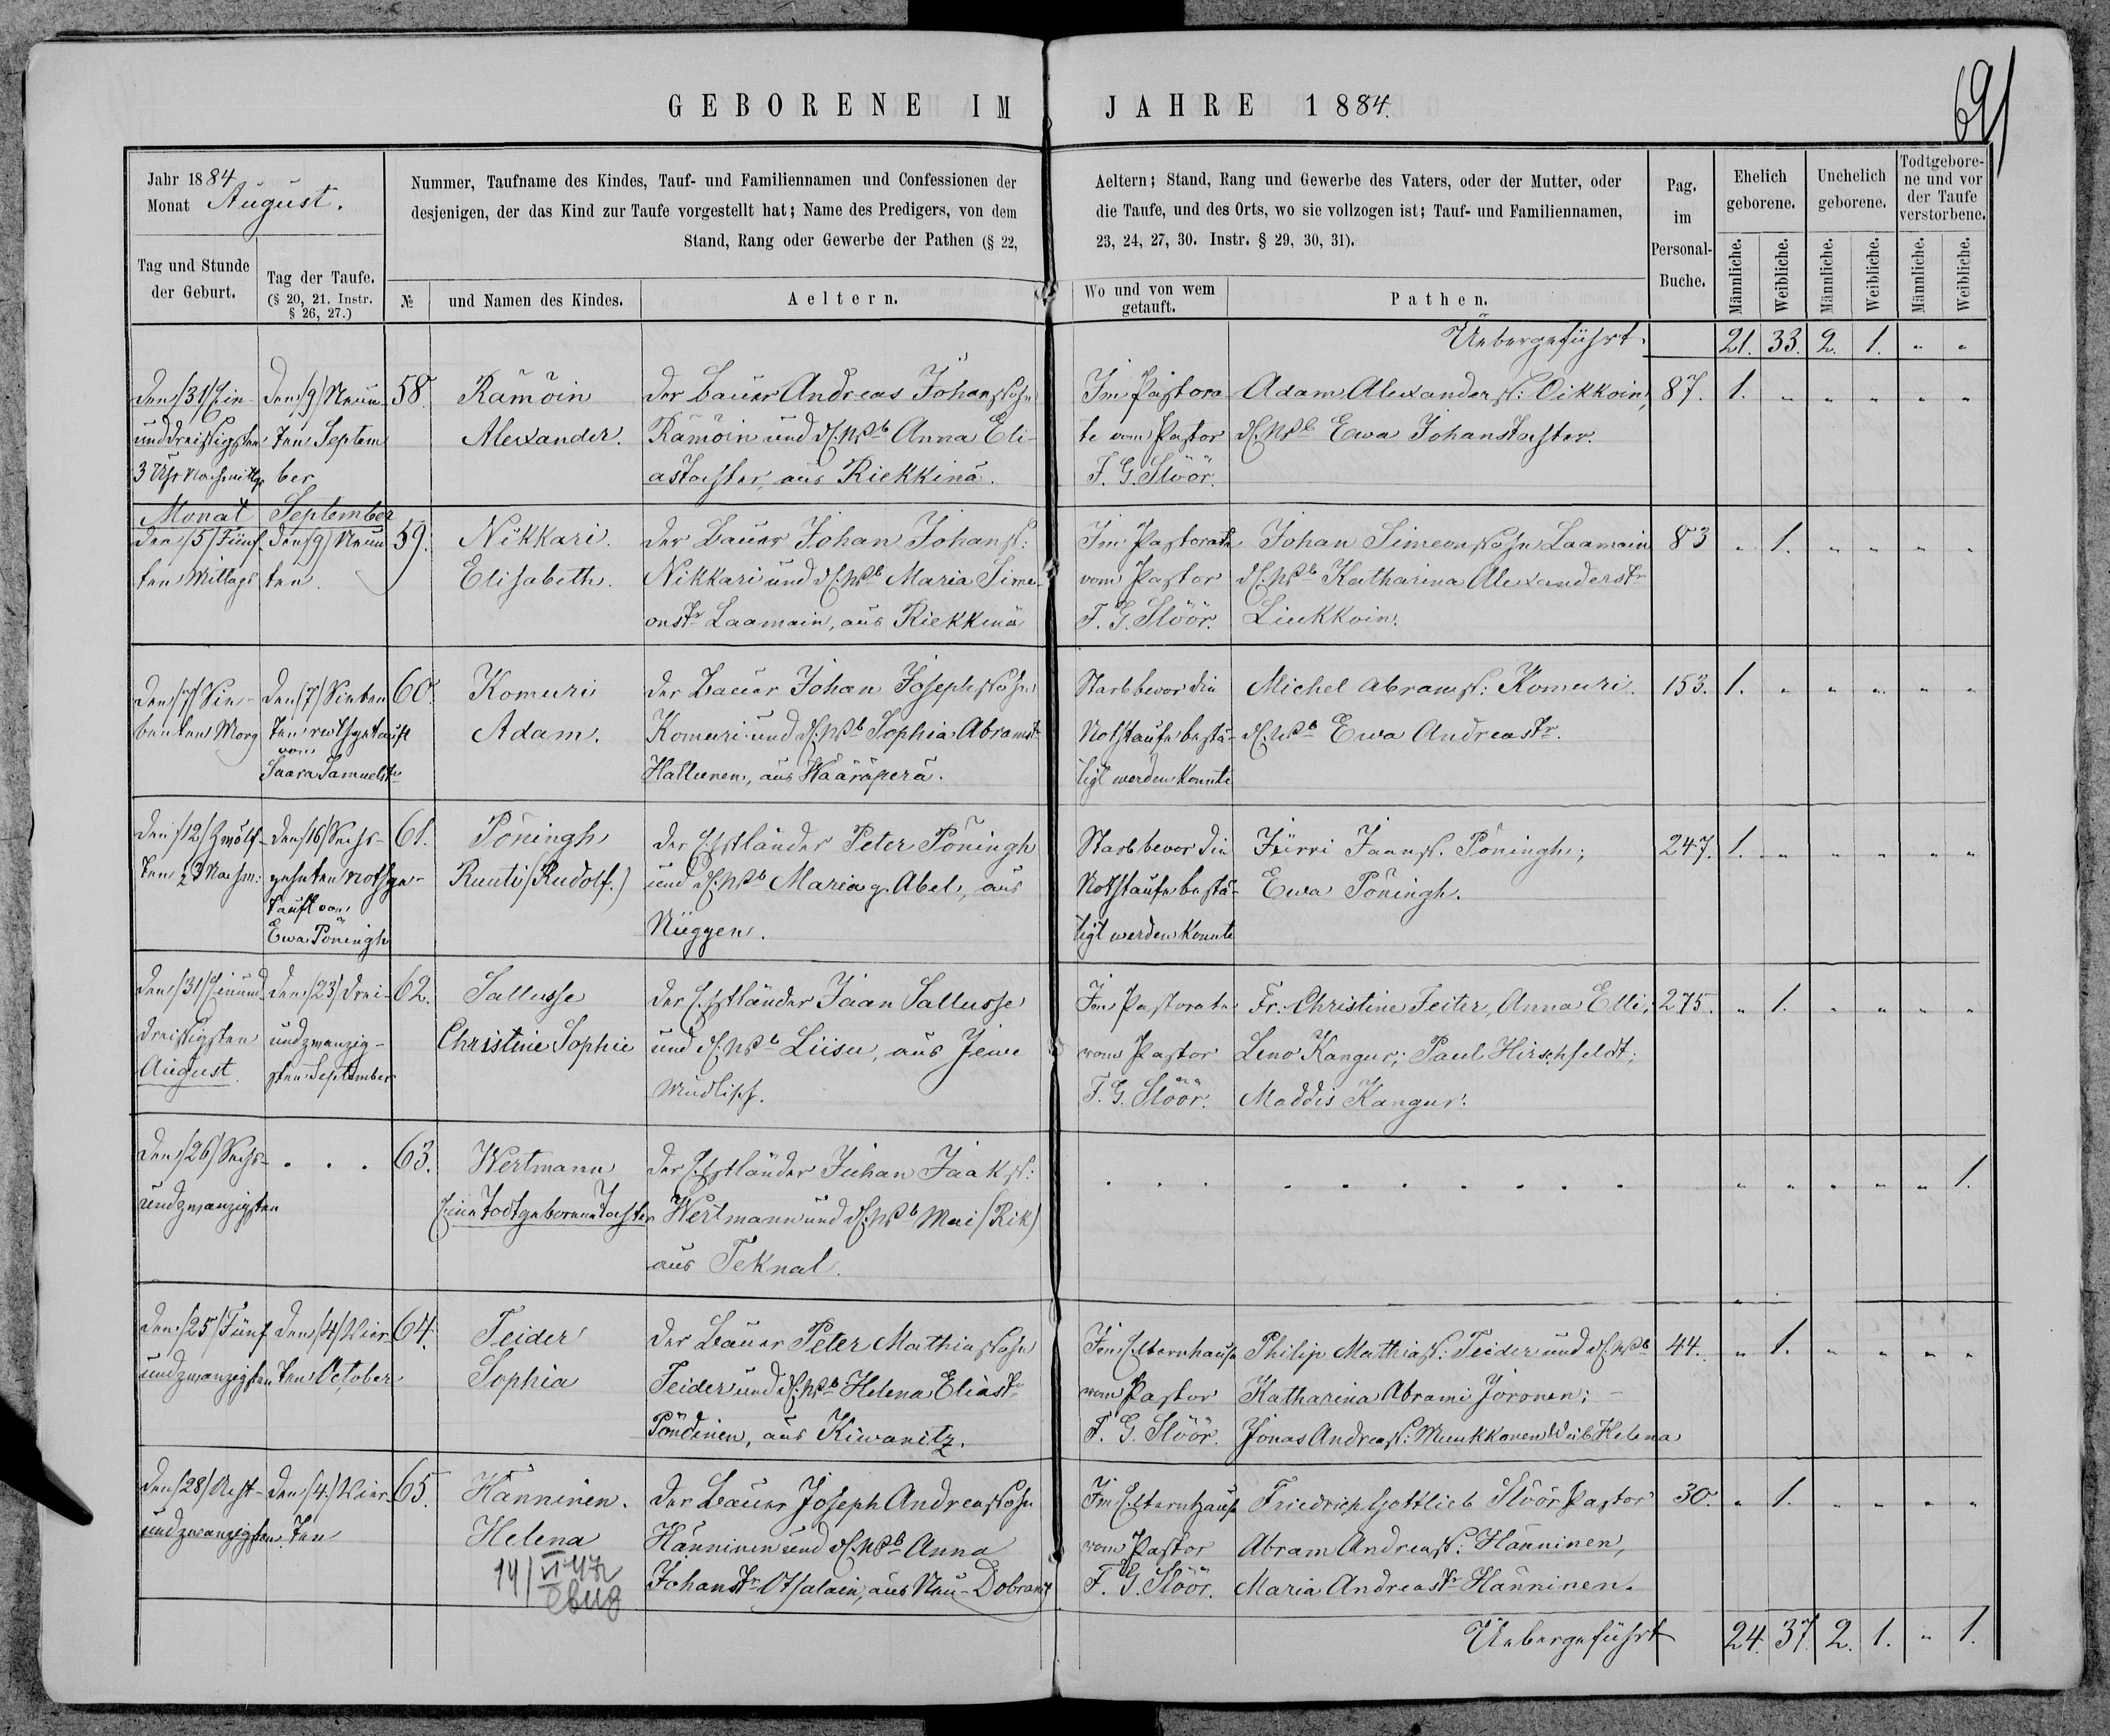 GEBORENE IM JAHRE 1884.
69
Jahr 1884
Monat August.
Nummer, Taufname des Kindes, Tauf- und Familiennamen und Confessionen der
desjenigen, der das Kind zur Taufe vorgestellt hat; Name des Predigers, von dem
Stand, Rang oder Gewerbe der Pathen (§ 22,
Aeltern; Stand, Rang und Gewerbe des Vaters, oder der Mutter, oder
die Taufe, und des Orts, wo sie vollzogen ist; Tauf- und Familiennamen,
23, 24, 27, 30. Instr. § 29, 30, 31).
Pag.
im
Personal-
Buche.
Ehelich
geborene.
Unehelich
geborene.
Todtgebore-
ne und vor
der Taufe
verstorbene.
Tag und Stunde
der Geburt.
Tag der Taufe.
(§ 20, 21. Instr.
§ 26, 27.)
№
und Namen des Kindes.
Aeltern.
Wo und von wem
getauft.
Pathen.
Männliche.
Weibliche.
Männliche.
Weibliche.
Männliche.
Weibliche.
Uebergeführt. 21. 33. 2. 1. " "
Den /31/ Ein-
unddreißigsten
3 Uhr Nachmittgs
Den /9/ Neun-
ten Septem
ber
58.
Rämöin
Alexander.
Der Bauer Andreas Johanssohn
Rämöin und ds. Wb Anna Eli-
astochter, aus Riekkinä.
Im Pastora-
te vom Pastor
F. G. Slöör.
Adam Alexanders: Oikkoin,
ds. Wb Ewa Johanstochter.
87. 1. " " " " "
Monat September
Den /5/ Fünf-
ten Mittags
Den /9/ Neun
ten.
59.
Nikkari.
Elisabeth.
Der Bauer Johan Johans:
Nikkari und ds. Wb Maria Sime-
onstr Laamain, aus Riekkinä
Im Pastorate
vom Pastor
F. G. Slöör.
Johan Simeonssohn Laamain
ds. Wb Katharina Alexanderstr
Liukkoin.
83 " 1. " " " "
Den /7/ Sie-
benten Morg
Den /7/ Sieben
ten nothgetauft
von
Saara Samuelstr
60.
Komuri
Adam.
Der Bauer Johan Josephssohn
Komuri und ds. Wb Sophia Abramstr
Hattunen, aus Wääräperä.
Starb bevor die
Nothtaufe bestä-
tigt werden konnte
Michel Abrams: Komuri.
ds. Wb Ewa Andreastr.
153. 1. " " " " "
Den /12/ Zwölf-
ten ½3 Nachm:
Den /16/ Sechs-
zehnten nothge-
tauft von
Ewa Pöningh
61.
Pöningh
Ruuti (Rudolf.)
Der Ehstländer Peter Pöningh
und ds. Wb Maria g. Abel, aus
Nüggen.
Starb bevor die
Nothtaufe bestä-
tigt werden konnte
Jürri Jaans. Pöningh;
Ewa Pöningh.
247. 1. " " " " "
Den /31/ Einund
dreißigsten
August.
Den /23/ Drei-
undzwanzig-
sten September
62.
Sallusse
Christine Sophie
Der Ehstländer Jaan Sallusse
und ds. Wb Liisu, aus Jewe
Im Pastorate
vom Pastor
F. G. Slöör.
Fr. Christine Feiter, Anna Elli;
Leno Kangur; Paul Hirschfeldt;
Maddis Kangur.
275. " 1. " " " "
Den /26/ Sechs-
undzwanzigsten
. . .
63.
Wertmann
Eine Todtgeborene Tochter
Der Ehstländer Juhan Jaaks:
Wertmann und ds. Wb Mai (Rik)
aus Teknal.
" " " " " 1.
Den /25/ Fünf
undzwanzigsten
Den /4/ Vier-
ten October
64.
Teider
Sophia
Der Bauer Peter Mathiassohn
Teider und ds. Wb Helena Eliastr
Pöndinen, aus Kiwanitz.
Im Elternhause
vom Pastor
F. G. Slöör.
Philip Mathias: Teider und ds. Wb
Katharina Abrami Joronen;
Jonas Andreas: Muukkonen Weib Helena
44. " 1. " " " "
Den /28/ Acht-
undzwanzigsten
Den /4./ Vier-
ten
65.
Hänninen.
Helena
Der Bauer Joseph Andreassohn
Hänninen und ds. Wb Anna
Johanstr Otsalain, aus Neu-Dobranitz
Im Elternhause
vom Pastor
F. G. Slöör.
Friedrich Gottlieb Slöör Pastor
Abram Andreas: Hänninen,
Maria Andreastr Hänninen.
30. " 1. " " " "
Uebergeführt 24. 37. 2. 1. " 1.